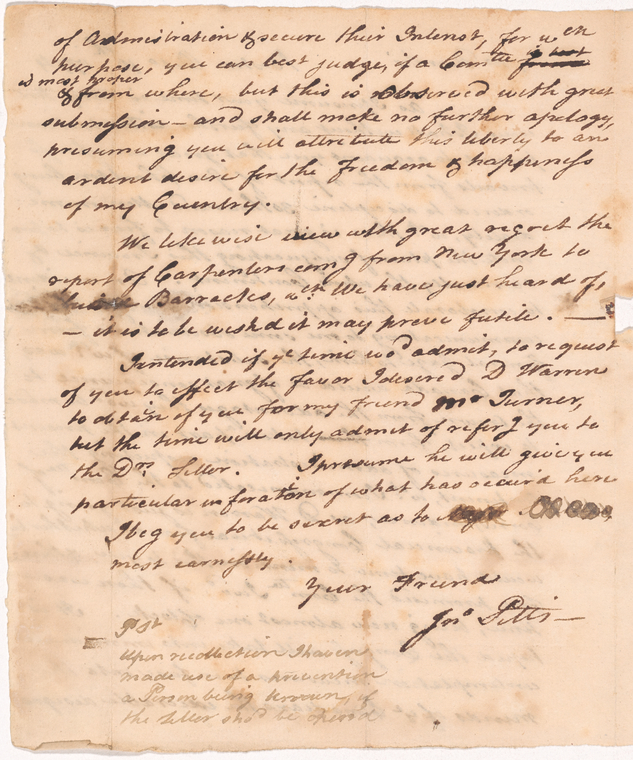 of Admistration & secure their Interest, for wch
purpose, you can best judge, if a Comtte is best
is most proper
& from where, but this is Observed with great
submission — and shall make no further apology,
presuming you will attribute this liberty to an
ardent desire for the Freedom & happiness
of my Country.
We likewise view with great regret the
report of Carpenters comg from New York to
Barracks, wch We have just heard of,
— it is to be wish'd it may prove futile. —
I intended if ye time wod admit, to request
of you to effect the favor I desired D Warren
to obtan of you for my friend Mr Turner,
but the time will only admit of referg you to
the Drs Letter. I presume he will give you
particular inforaton of what has occur'd here
I beg you to be secret as to
most earnestly.
Your Friend
Jno Pitts —
P St
Upon recollection I haven
made use of a prevention
a Person being known, if
the Letter shod be opened